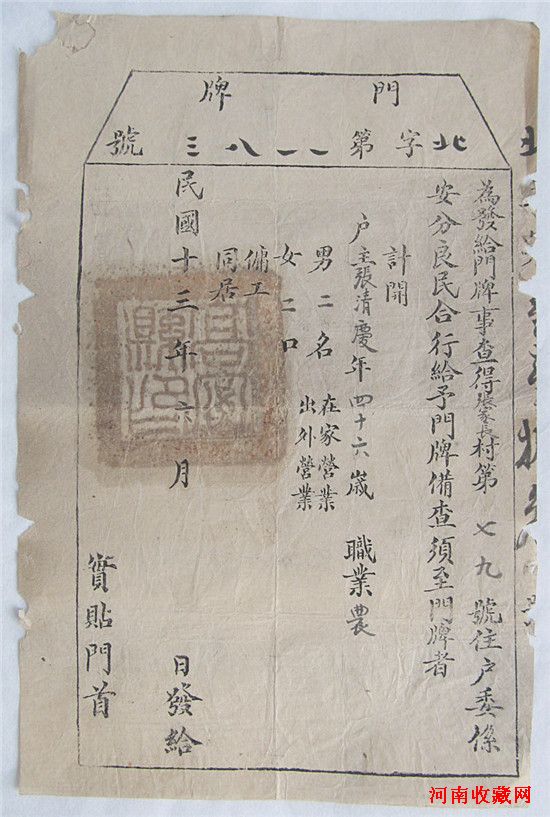 門牌
北字第一一八三號
為發給門牌事查得張家長村第七九號住户委係
安分良民合行給予門牌備查須至門牌者
計開
户主張清慶年四十六歲 職業農
男二名 在家營業
女二口 出外營業
傭工
同居
民國十三年六月 日發給
實貼門首
河南收藏网